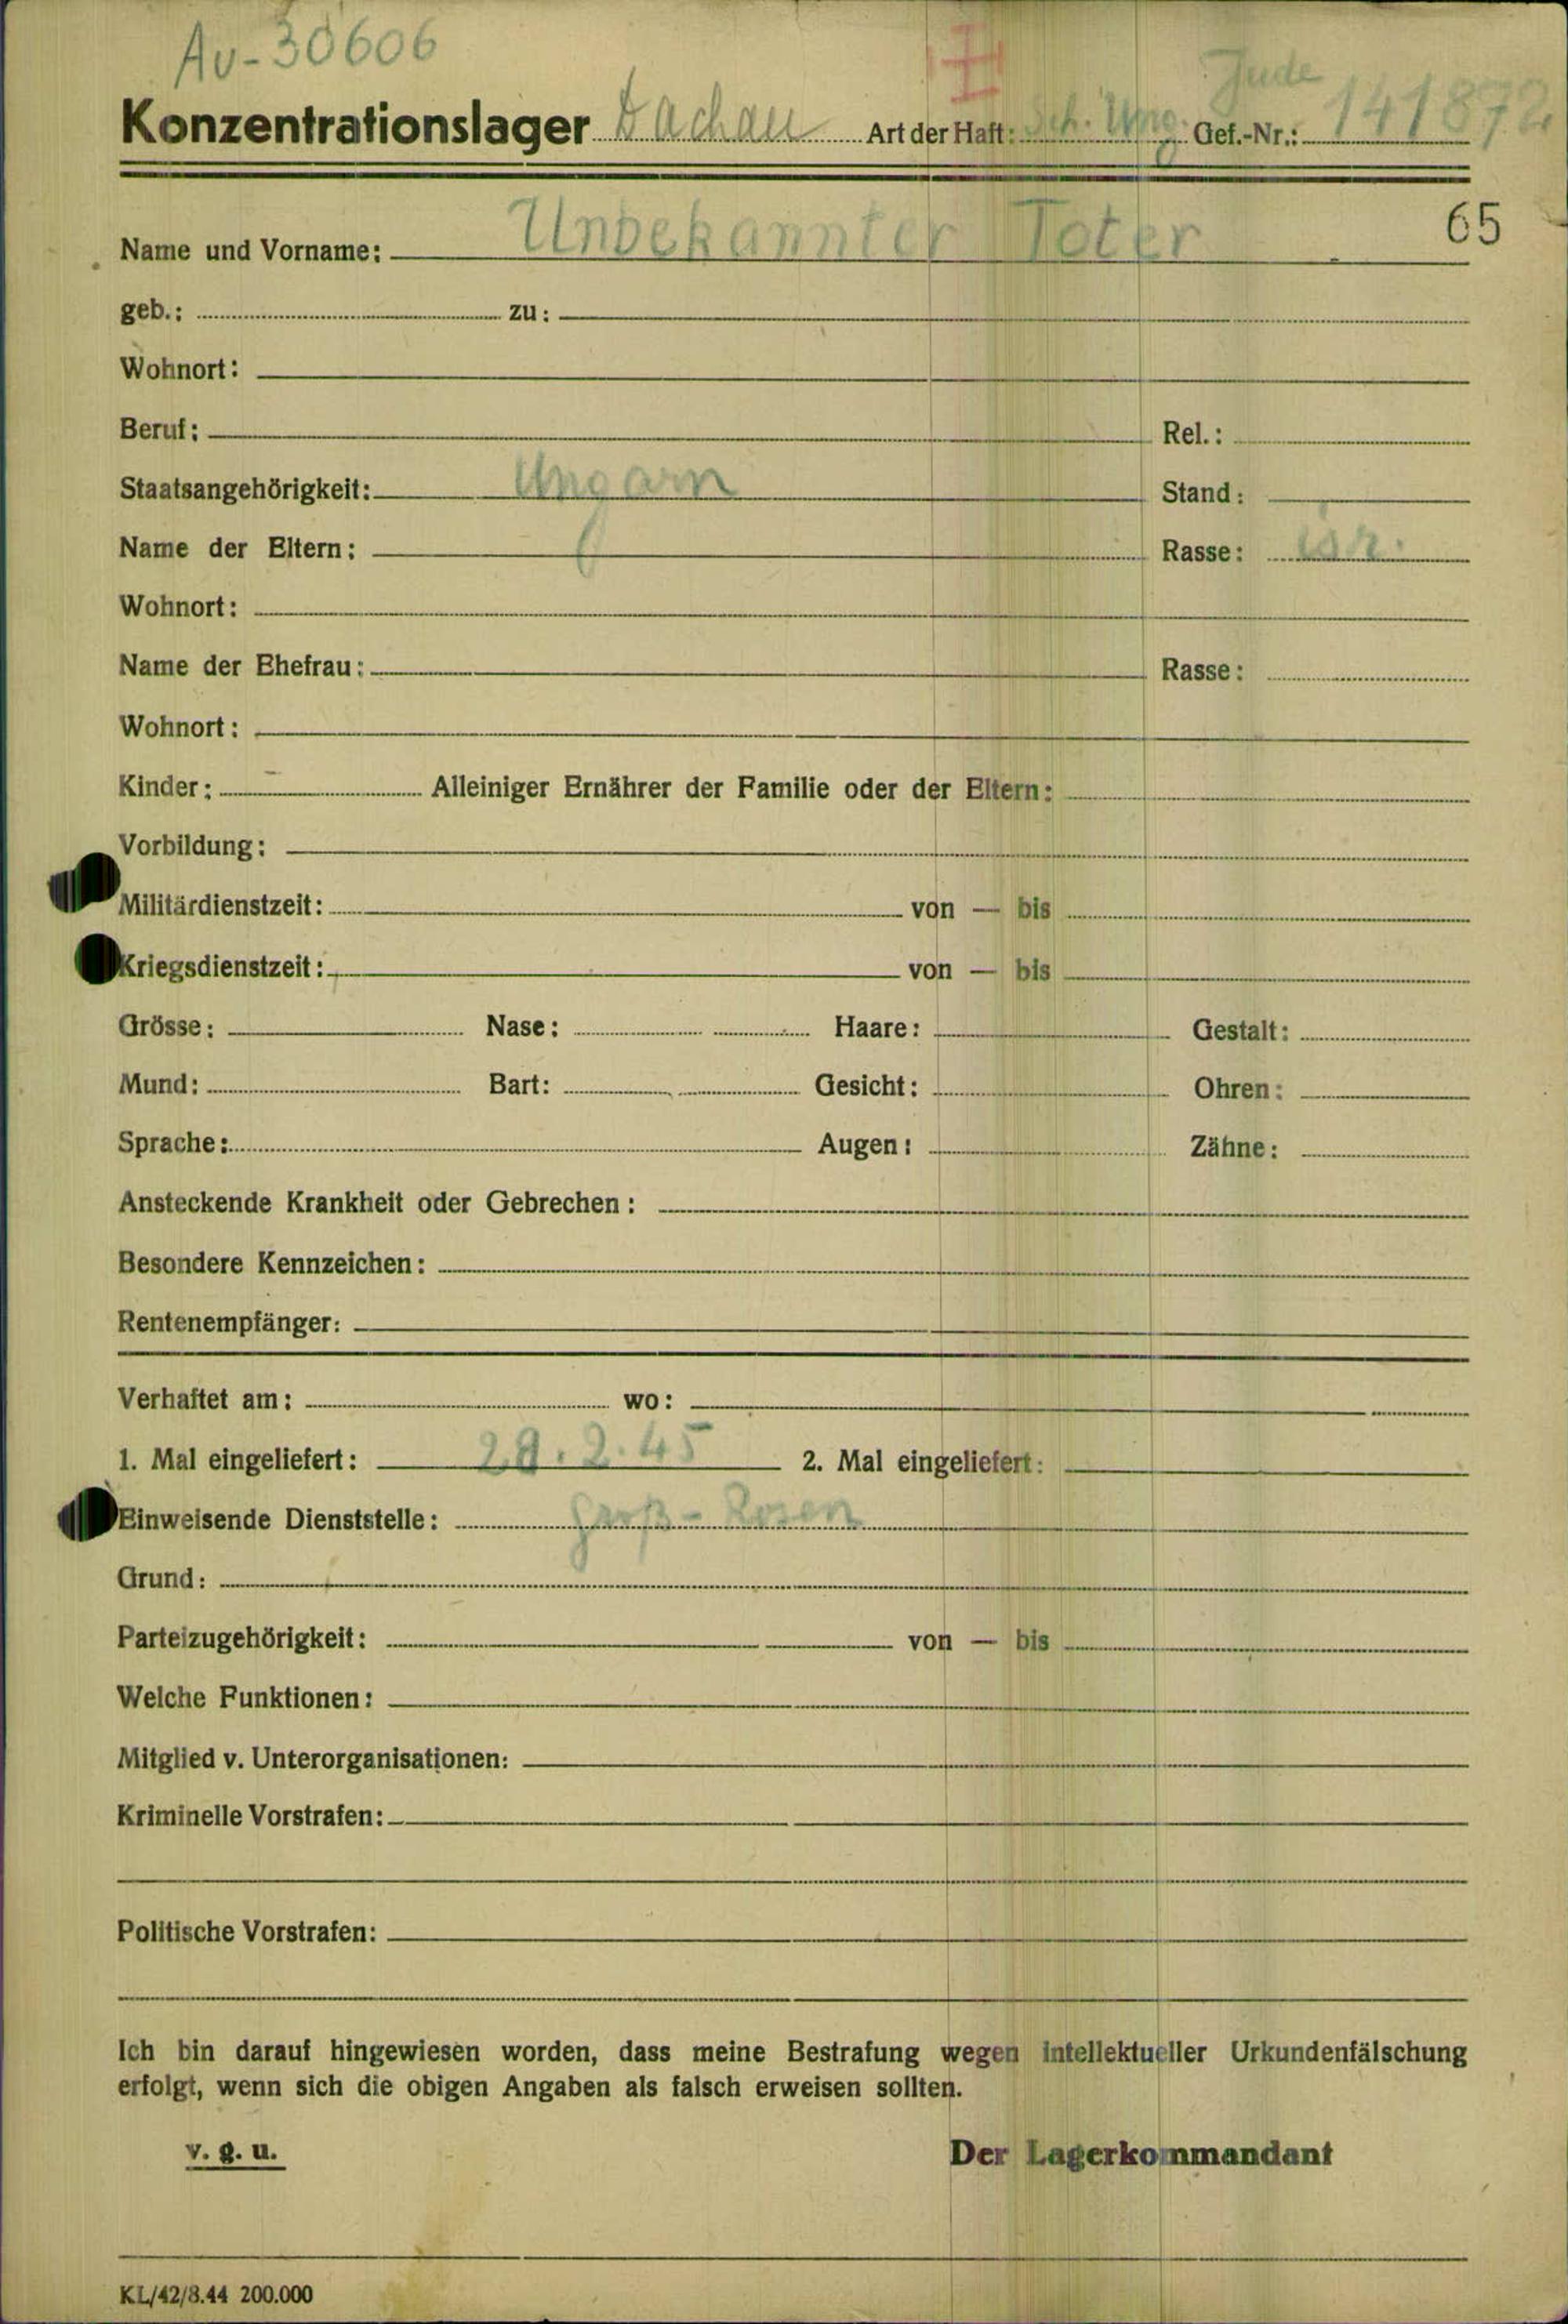 Au-30606
Jude
Konzentrationslager Dachau Art der Haft: Sch. Ung. Gef.-Nr.: 141872
65
Name und Vorname: Unbekannter Toter
geb.: zu:
Wohnort:
Beruf: Rel.:
Staatsangehörigkeit: Ungarn Stand:
Name der Eltern: Rasse: isr.
Wohnort:
Name der Ehefrau: Rasse:
Wohnort:
Kinder: Alleiniger Ernährer der Familie oder der Eltern:
Vorbildung:
Militärdienstzeit: von — bis
Kriegsdienstzeit: von — bis
Grösse: Nase: Haare: Gestalt:
Mund: Bart: Gesicht: Ohren:
Sprache: Augen: Zähne:
Ansteckende Krankheit oder Gebrechen:
Besondere Kennzeichen:
Rentenempfänger:
Verhaftet am: wo:
1. Mal eingeliefert: 28.2.45 2. Mal eingeliefert:
Einweisende Dienststelle: Groß-Rosen
Grund:
Parteizugehörigkeit: von — bis
Welche Funktionen:
Mitglied v. Unterorganisationen:
Kriminelle Vorstrafen:
Politische Vorstrafen:
Ich bin darauf hingewiesen worden, dass meine Bestrafung wegen intellektueller Urkundenfälschung
erfolgt, wenn sich die obigen Angaben als falsch erweisen sollten.
v. g. u. Der Lagerkommandant
KL/42/8.44 200.000